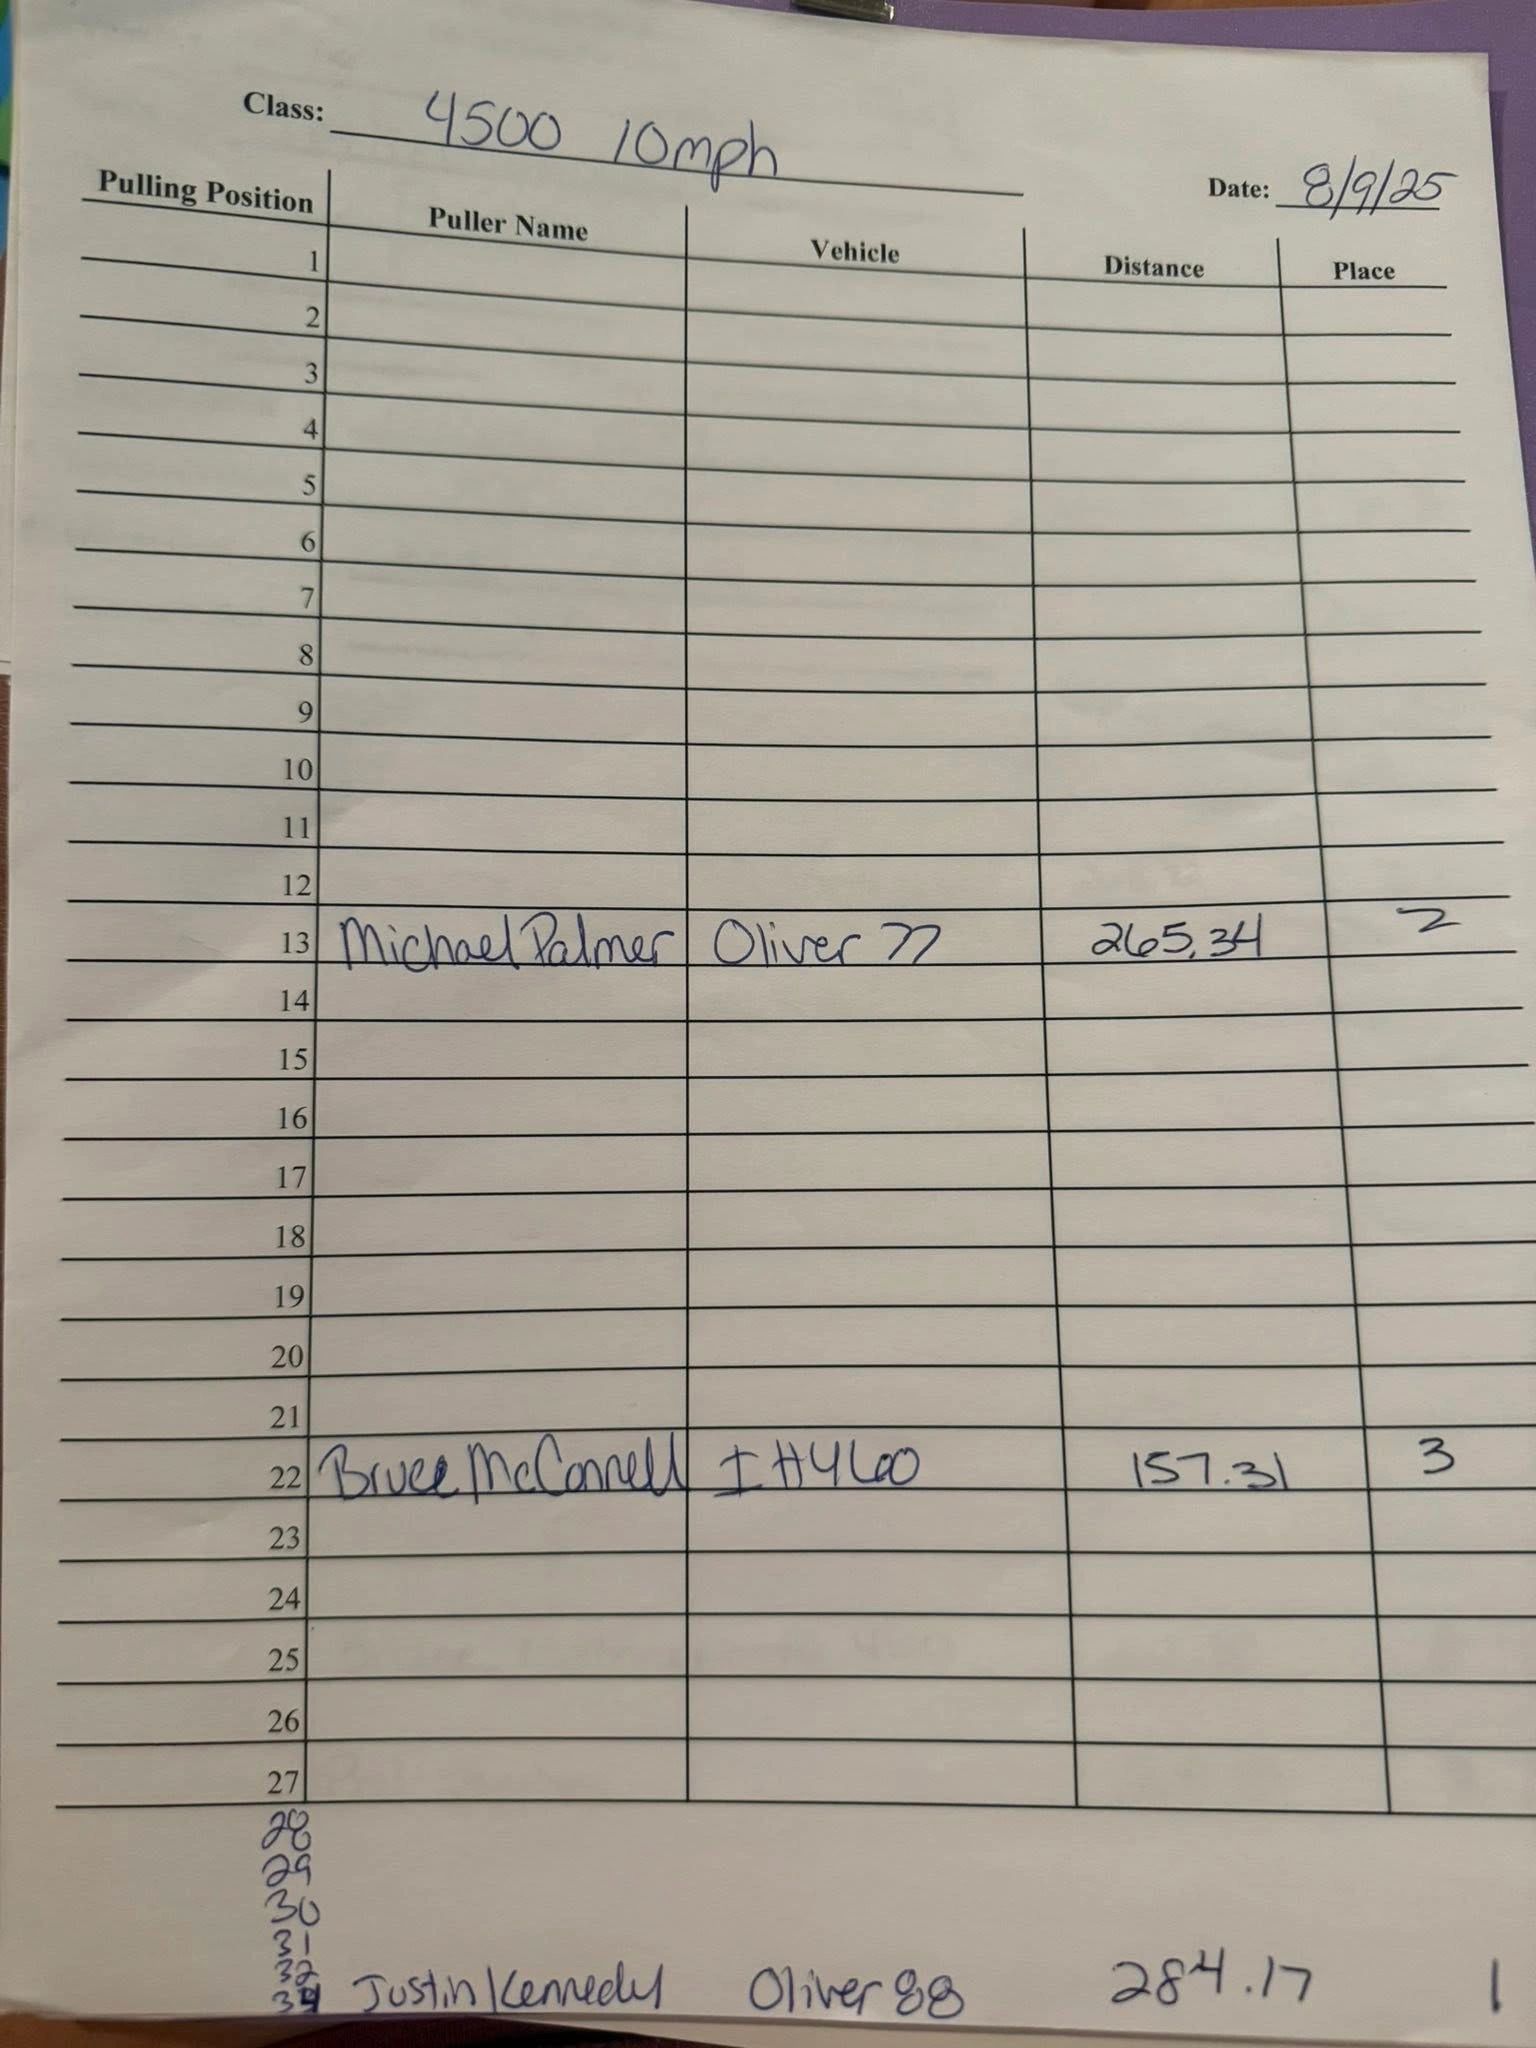 Class: 4500 10mph
Date: 8/9/25
Pulling Position Puller Name Vehicle Distance Place
1
2
3
4
5
6
7
8
9
10
11
12
13 Michael Palmer Oliver 77 265.34 2
14
15
16
17
18
19
20
21
22 Bruce McConnell IH 460 157.31 3
23
24
25
26
27
28
29
30
31
32
34 Justin Kennedy Oliver 88 284.17 1